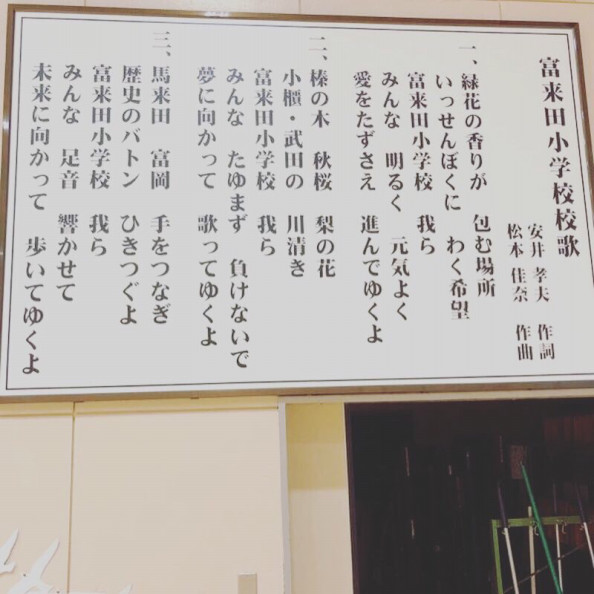 富来田小学校校歌
安井 孝夫 作詞
松本 佳奈 作曲
一、緑花の香りが 包む場所
いっせんぼくに わく希望
富来田小学校 我ら
みんな 明るく 元気よく
愛をたずさえ 進んでゆくよ
二、榛の木 秋桜 梨の花
小櫃・武田の 川清き
富来田小学校 我ら
みんな たゆまず 負けないで
夢に向かって 歌ってゆくよ
三、馬来田 富岡 手をつなぎ
歴史のバトン ひきつぐよ
富来田小学校 我ら
みんな 足音 響かせて
未来に向かって 歩いてゆくよ